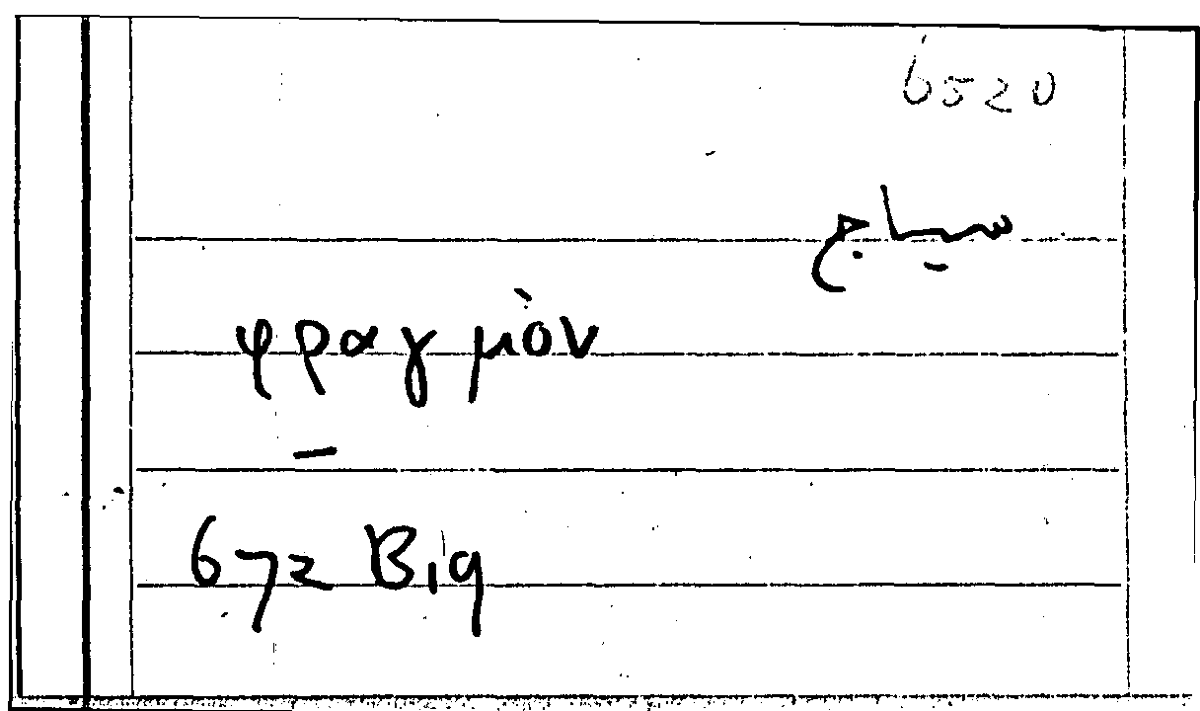 6520
سياج
φραγμὸν
–
672 B19